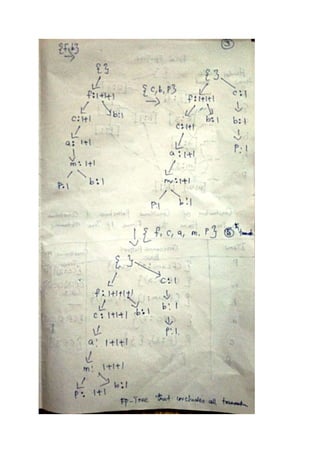 {f,b}
{ }
f:1+1+1
c:1+1
b:1
a: 1+1
m: 1+1
P:1
b:1
{ c, b, P}
{ }
f:1+1+1
c:1
c:1+1
b:1
b:1
a: 1+1
P:1
m:1+1
P:1
b:1
{ f, c, a, m, P }
{ }
f: 1+1+1+1
c:1
c: 1+1+1
b:1
b:1
P:1
a: 1+1+1
m: 1+1+1
P: 1+1
b:1
FP-Tree that includes all